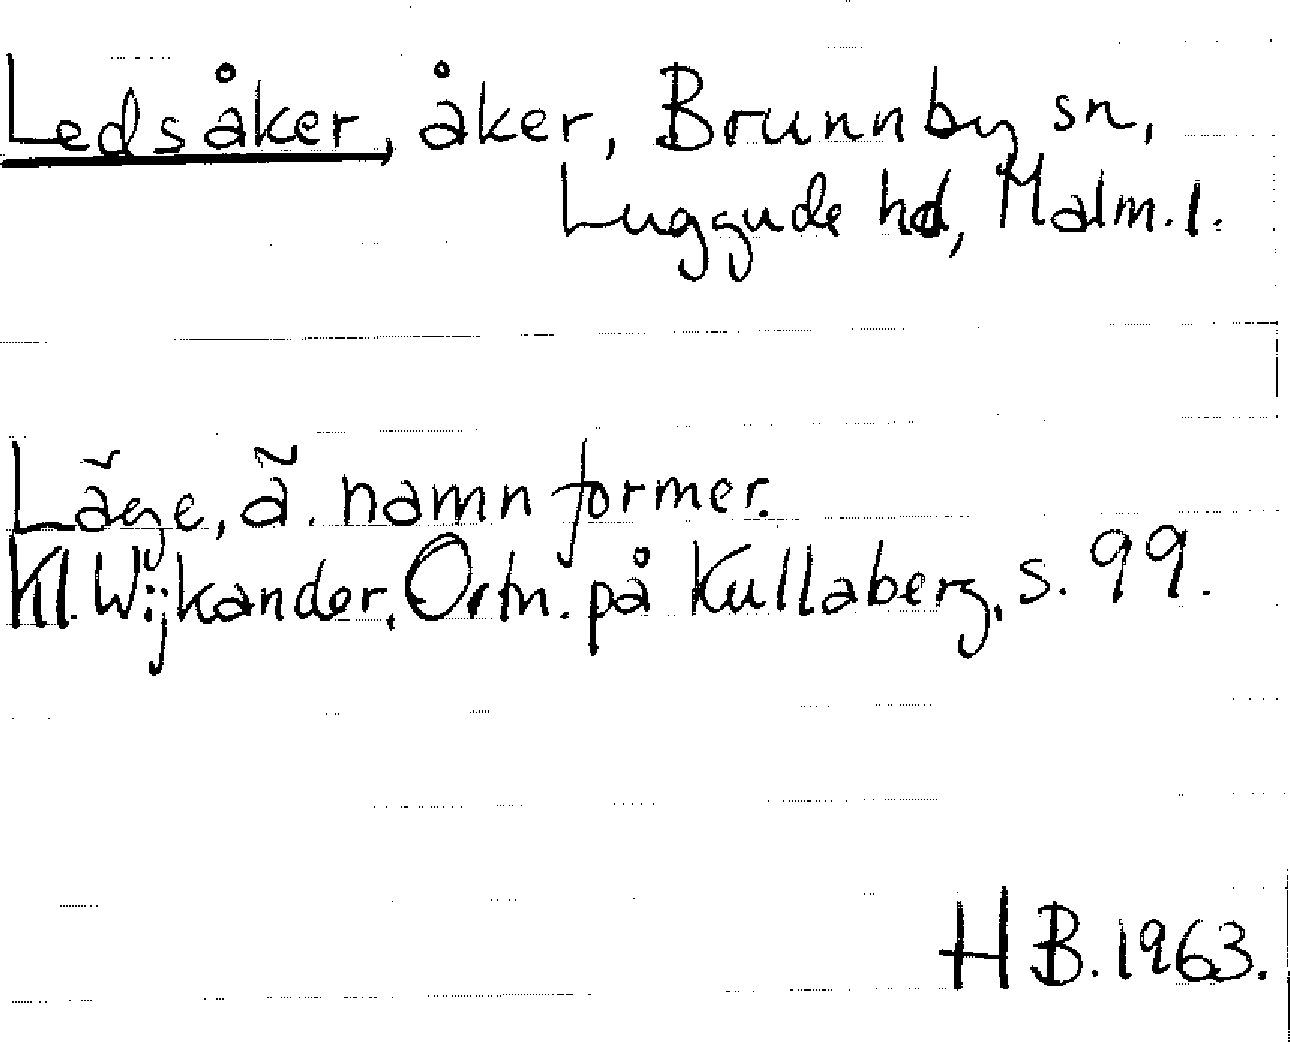 Ledsåker, åker, Brunnby sn,
Luggude hd, Malm. l.
Läge, ä. namnformer.
Kl. Wijkander, Ortn. på Kullaberg, s. 99.
H B. 1963.